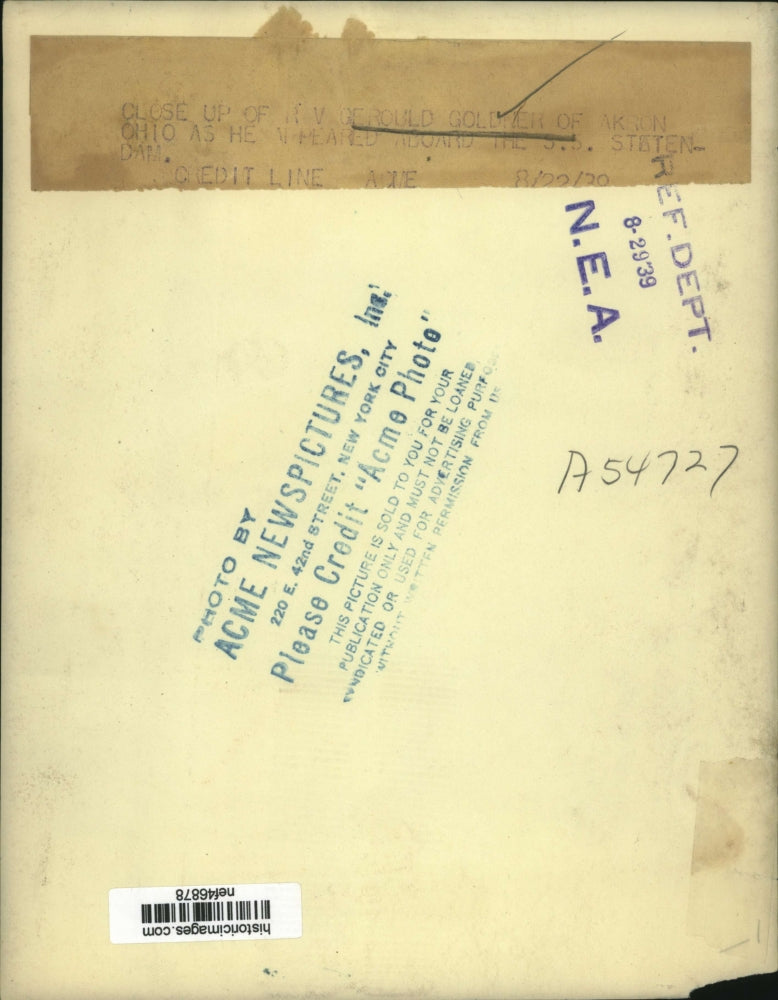 CLOSE UP OF REV GEROULD GOLDNER OF AKRON
OHIO AS HE APPEARED ABOARD THE S.S. STATEN-
DAM.
CREDIT LINE ACME 8/22/39
REF. DEPT.
8-29'39
N.E.A.
PHOTO BY
ACME NEWSPICTURES, Inc.
220 E. 42nd STREET, NEW YORK CITY
Please Credit "Acme Photo"
THIS PICTURE IS SOLD TO YOU FOR YOUR
PUBLICATION ONLY AND MUST NOT BE LOANED,
SYNDICATED OR USED FOR ADVERTISING PURPOSES
WITHOUT WRITTEN PERMISSION FROM US
A54727
historicimages.com
nef46878